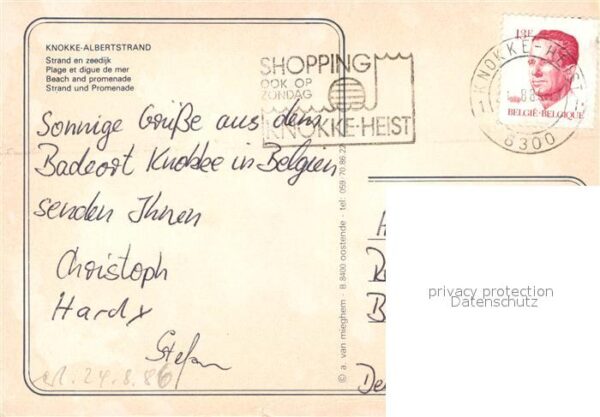 KNOKKE-ALBERTSTRAND
Strand en zeedijk
Plage et digue de mer
Beach and promenade
Strand und Promenade
SHOPPING
OOK OP
ZONDAG
KNOKKE-HEIST
13F
BELGIË-BELGIQUE
KNOKKE-HEIST
8300
Sonnige Grüße aus dem
Badeort Knokke in Belgien
senden Ihnen
Christoph
Hardy
Stefan
24.8.86
© a. van mieghem B 8400 oostende - tel. 059-70 86 22
privacy protection
Datenschutz